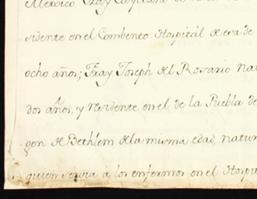 Mexico Fray
sidente en el Combento Hospital de
ocho años; Fray Joseph del Rosario Na
dos años, y residente en el de la Puebla de
gen de Bethlem de la misma edad, natur
quien servia a los enfermos en el Hospi